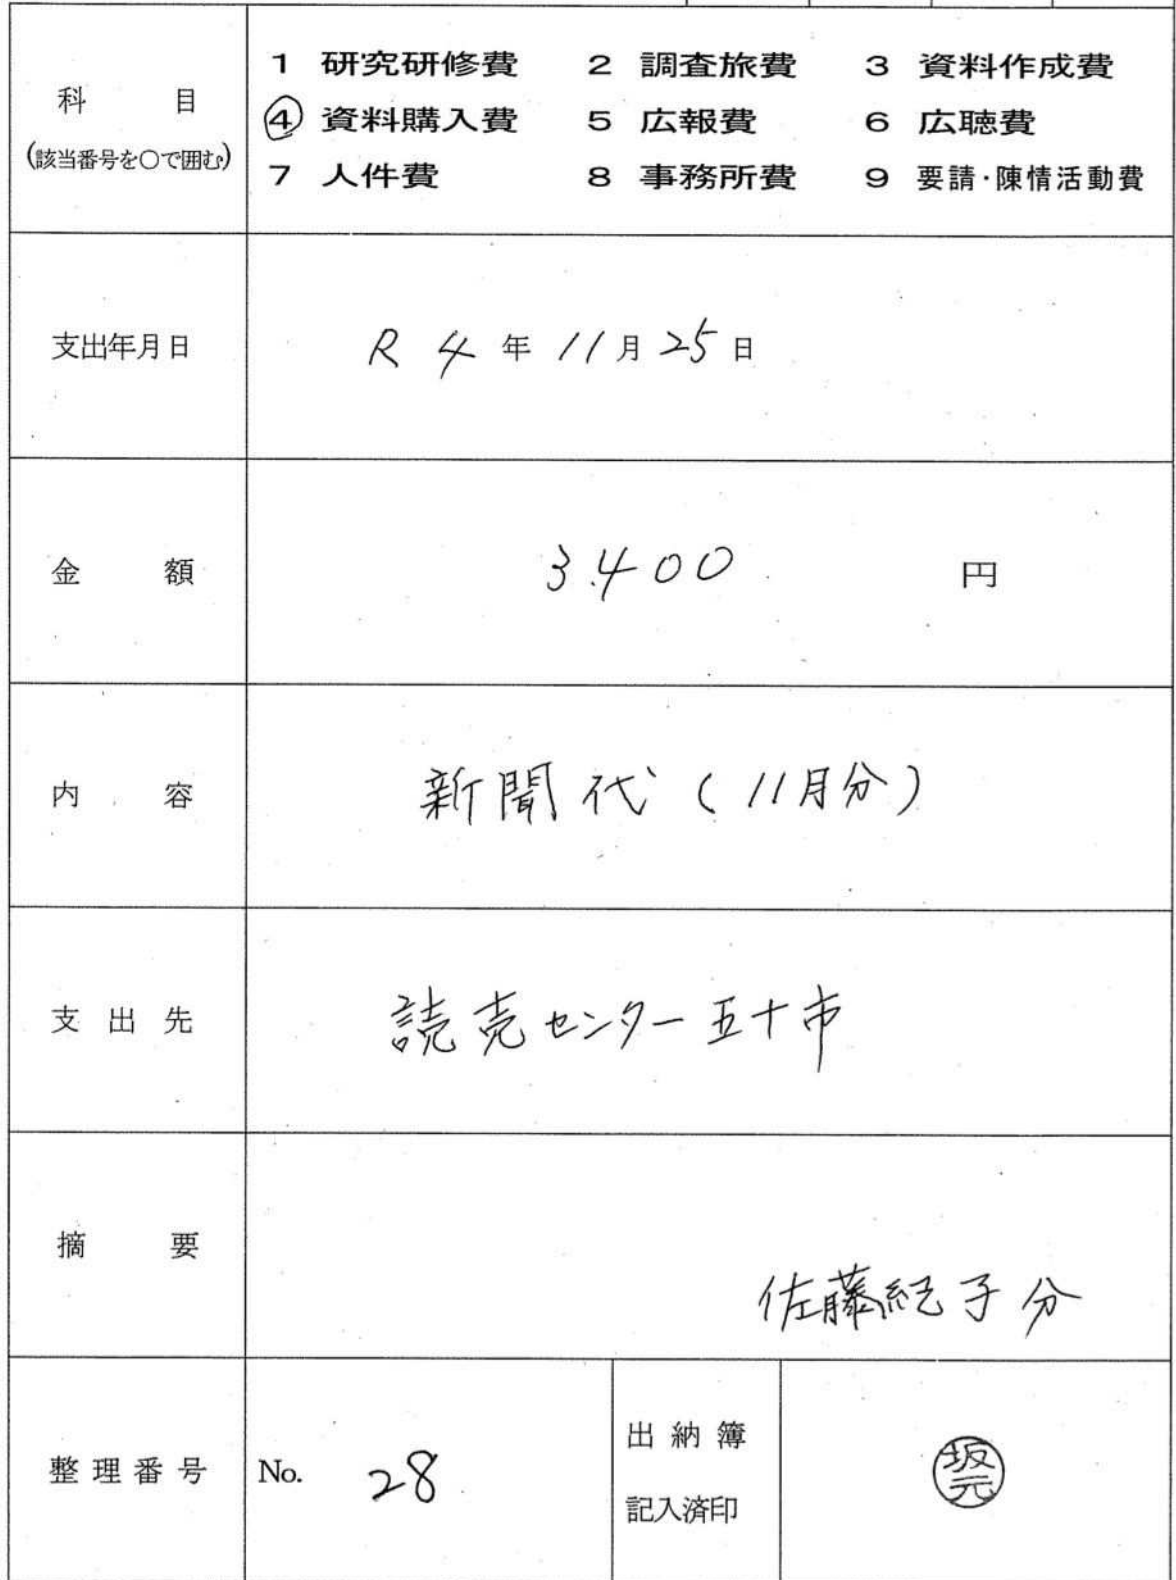 科目 1 研究研修費 2 調査旅費 3 資料作成費
④ 資料購入費 5 広報費 6 広聴費
(該当番号を○で囲む) 7 人件費 8 事務所費 9 要請・陳情活動費
支出年月日 R4年11月25日
金額 3,400円
内容 新聞代(11月分)
支出先 読売センター五十市
摘要 佐藤紀子分
整理番号 No. 28 出納簿 坂元
記入済印